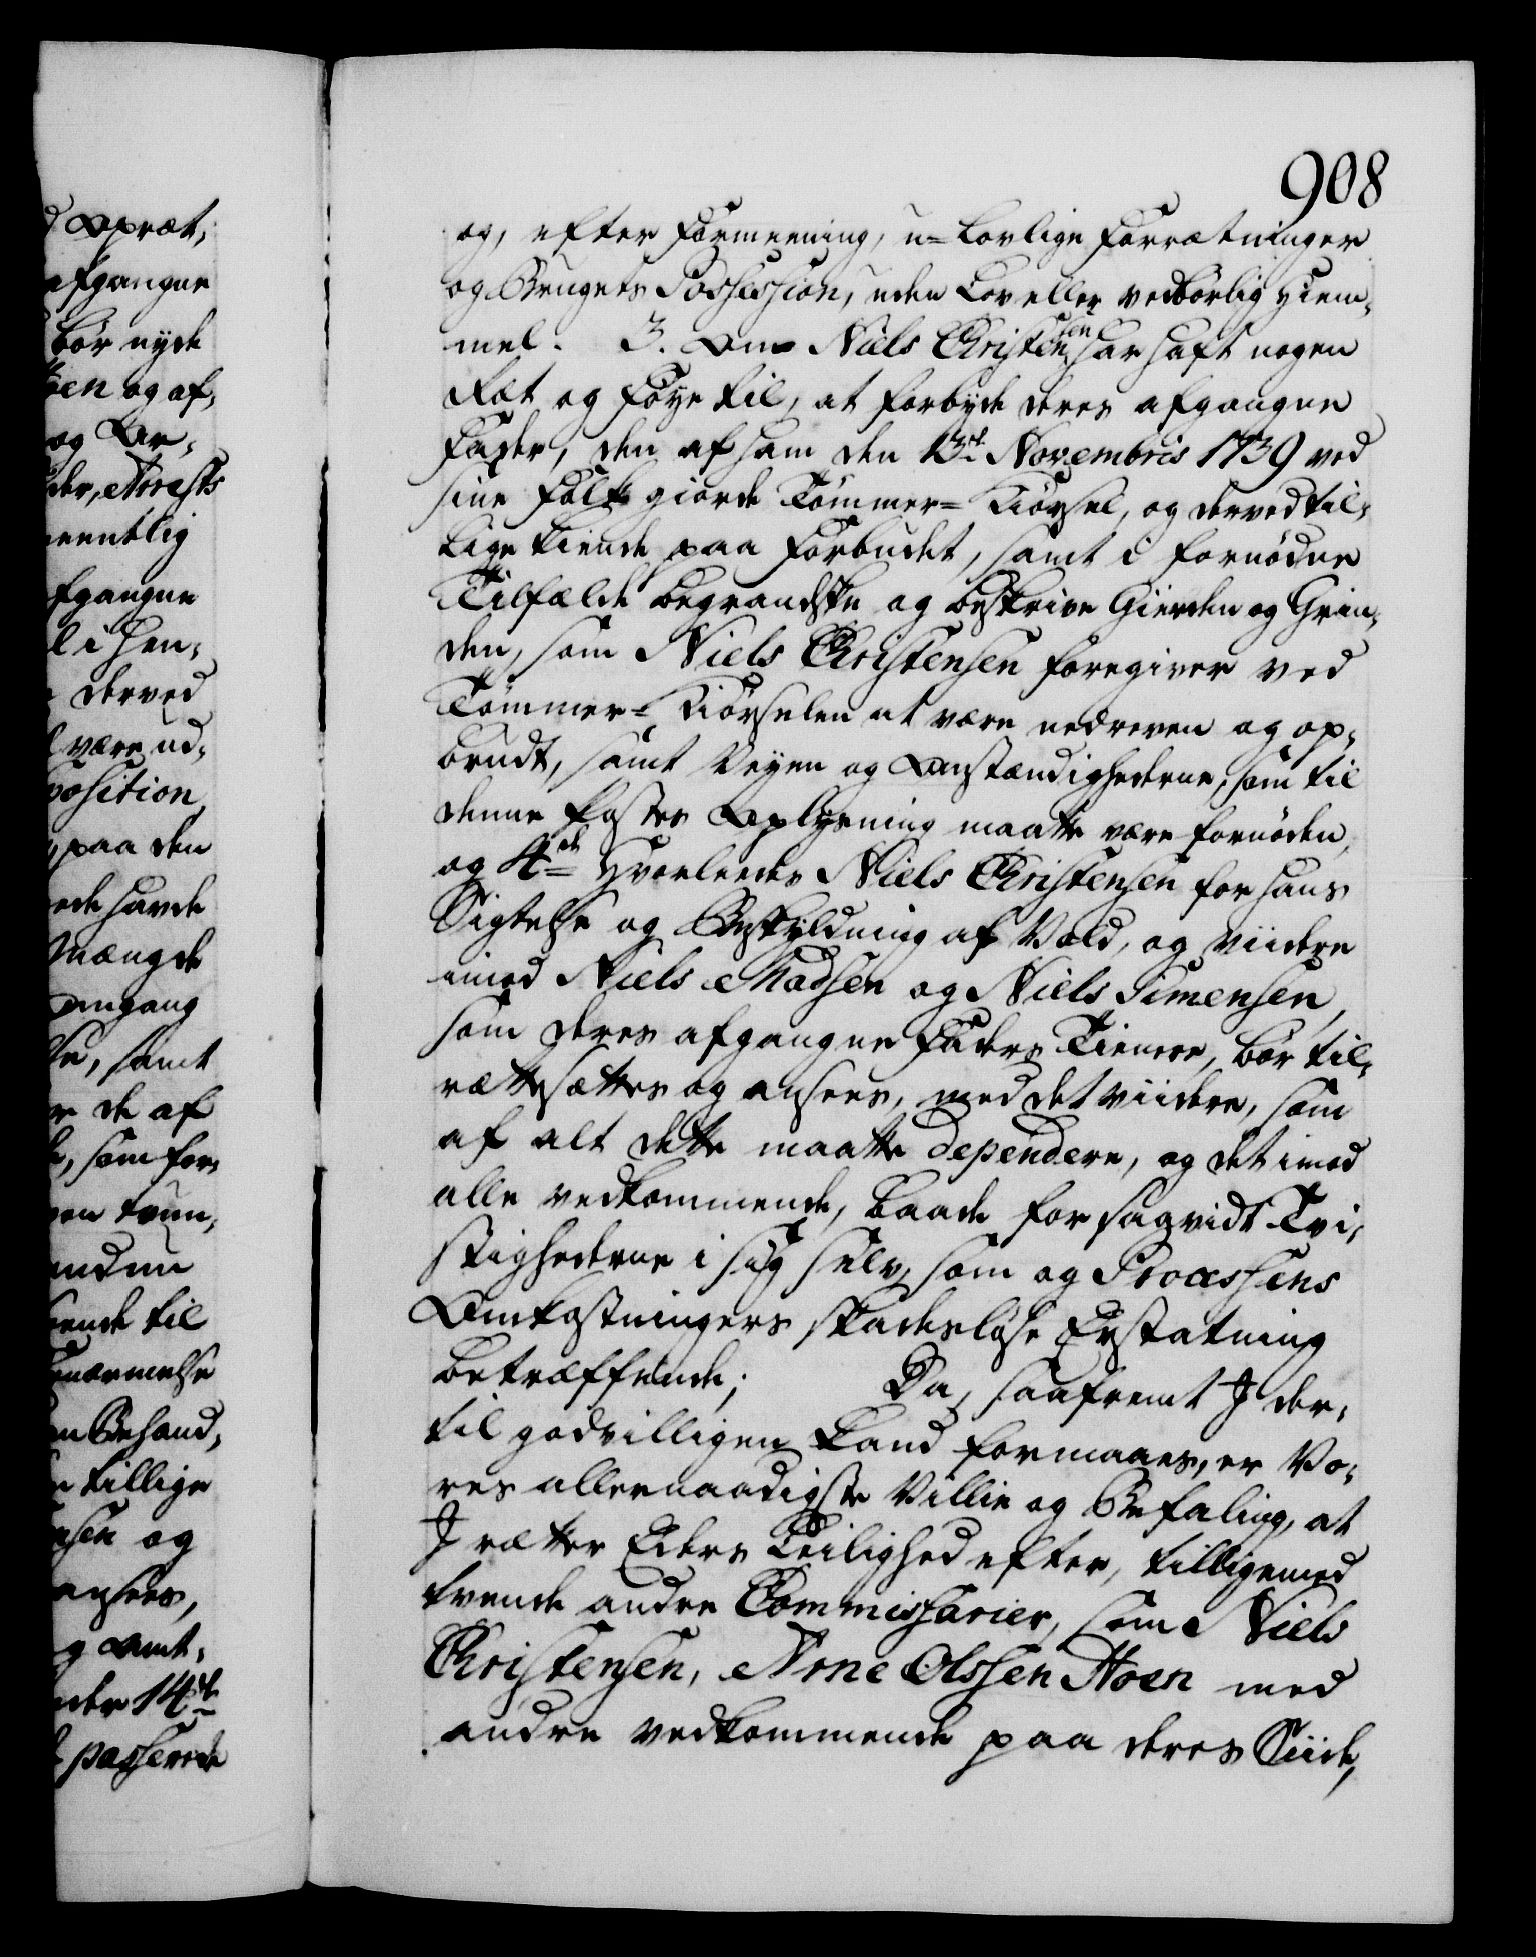 908
og, efter Formeening, u-lovlige Forrætninger
og Brugets Possession, uden Lov eller vedbørlig Hiem,
mel. 3. Om Niels Christensen har haft nogen
Ræt og Føye til, at forbyde deres afgangne
Fader, den af ham den 13de Novembris 1739 ved
sine Folk giorde Tømmer-Kiørsel, og derved til,
lige kiende paa Forbudet, samt i fornødne
Tilfælde begrandske og beskrive Gierden og Grin,
den, som Niels Christensen foregiver ved
Tømmer-Kiørselen at være nedreven og op,
brudt, samt Veyen og Omstændighederne, som til
denne Postes Oplysning maatte være fornøden,
og 4de Hvorleedes Niels Christensen for hans
Sigtelse og Beskyldning af Vold, og viidere
imod Niels Madsen og Niels Simensen,
som deres afgangne Faders Tienere, bør til,
rættesættes og ansees, med det viidere, som
af alt dette maatte dependere, og det imod
alle vedkommende, baade for saavidt Tvi,
stighederne i sig selv, som og Processens
Omkostningers skadesløse Erstatning
betræffende; Da, saafremt I der,
til godvilligen kand formaaes, er Vo,
res allernaadigste Villie og Befaling, at
I rætter Eders Leilighed efter, tilligemed
tvende andre Commissarier, som Niels
Christensen, Arne Olssen Hoen med
andre vedkommende paa deres Siide,
d Opræt,
afgangne
bør nyde
oen og af,
og Ar,
der, Arrests
neentlig
afgangne
l i Hen,
e derved
l være ud,
position,
, paa den
ede havde
Mængde
Omgang
se, samt
er de af
t, som for,
en tvun,
endnu
ende til
rnærmelse
en Behand,
e tillige
nsen og
ansees,
g Omt,
nder 14de
t passerede